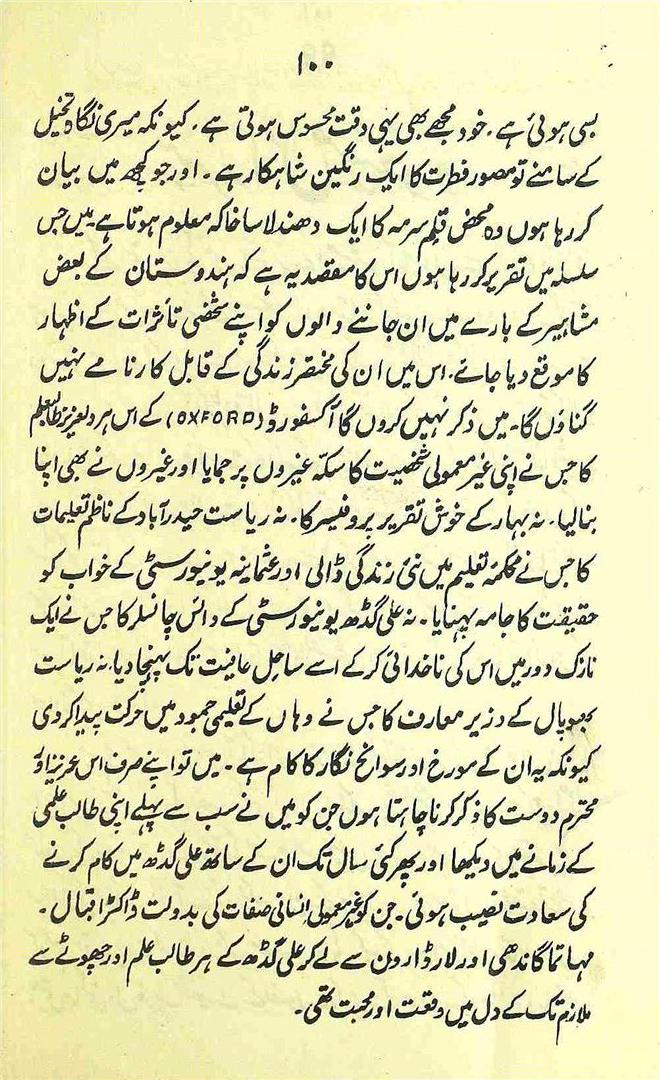 ۱۰۰
بسی ہوئی ہے۔ خود مجھے بھی یہی دقت محسوس ہوتی ہے۔ کیونکہ میری نگاہ تخیل
کے سامنے تو مصور فطرت کا ایک رنگین شاہکار ہے۔ اور جو کچھ میں بیان
کر رہا ہوں وہ محض قلم سرمہ کا ایک دھندلا سا خاکہ معلوم ہوتا ہے۔ میں جس
سلسلہ میں تقریر کر رہا ہوں اس کا مقصد یہ ہے کہ ہندوستان کے بعض
مشاہیر کے بارے میں ان جاننے والوں کو اپنے شخصی تأثرات کے اظہار
کا موقع دیا جائے۔ اس میں ان کی مختصر زندگی کے قابل کارنامے نہیں
گناؤں گا۔ میں ذکر نہیں کروں گا آکسفورڈ (OXFORD) کے اس ہر دلعزیز طالبعلم
کا جس نے اپنی غیر معمولی شخصیت کا سکہ غیروں پر جمایا اور غیروں نے بھی اپنا
بنالیا۔ نہ بہار کے خوش تقریر پروفیسر کا۔ نہ ریاست حیدرآباد کے ناظم تعلیمات
کا جس نے محکمۂ تعلیم میں نئی زندگی ڈالی اور عثمانیہ یونیورسٹی کے خواب کو
حقیقت کا جامہ پہنایا۔ نہ علی گڈھ یونیورسٹی کے وائس چانسلر کا جس نے ایک
نازک دور میں اس کی ناخدائی کرکے اسے ساحل عافیت تک پہنچا دیا۔ نہ ریاست
بھوپال کے وزیر معارف کا جس نے وہاں کے تعلیمی جمود میں حرکت پیدا کر دی
کیونکہ یہ ان کے مورخ اور سوانح نگار کا کام ہے۔ میں تو اپنے صرف اس عزیز اور
محترم دوست کا ذکر کرنا چاہتا ہوں جن کو میں نے سب سے پہلے اپنی طالب علمی
کے زمانے میں دیکھا اور پھر کئی سال تک ان کے ساتھ علی گڈھ میں کام کرنے
کی سعادت نصیب ہوئی۔ جن کو غیر معمولی انسانی صفات کی بدولت ڈاکٹر اقبال۔
مہاتما گاندھی اور لارڈ ارون سے لے کر علی گڈھ کے ہر طالب علم اور چھوٹے سے
ملازم تک کے دل میں وقعت اور محبت تھی۔